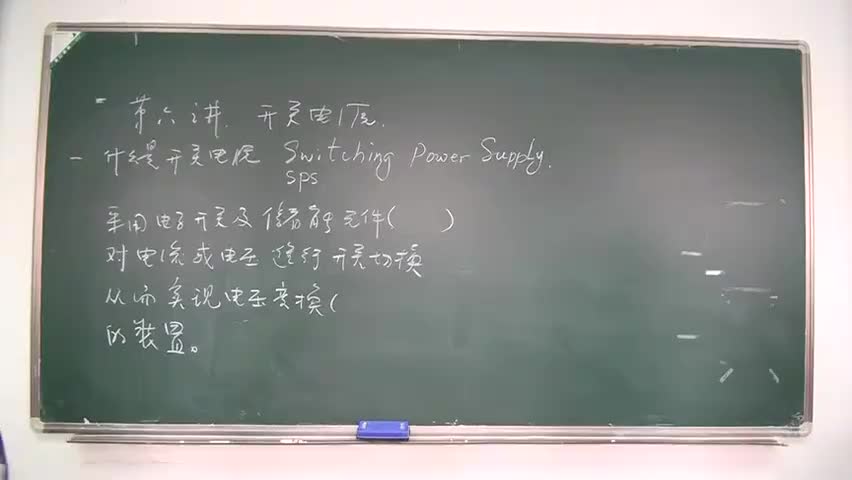 第六讲. 开关电源.
一 什么是开关电源 Switching Power Supply.
SPS
采用电子开关及储能元件( )
对电流或电压进行开关切换
从而实现电压变换(
的装置。